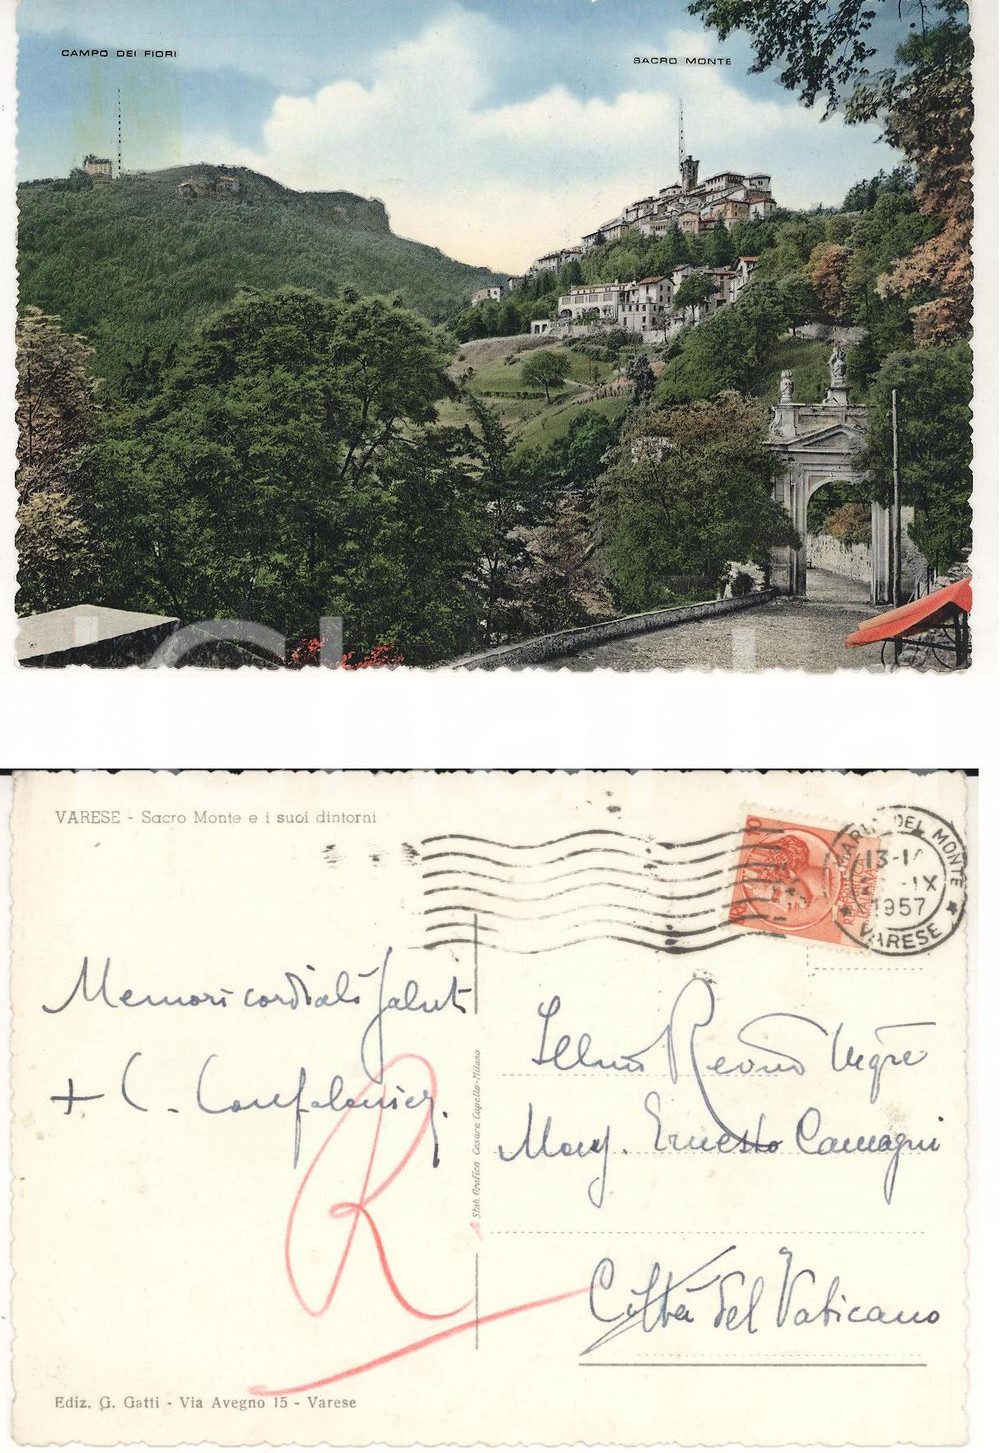 CAMPO DEI FIORI
SACRO MONTE
VARESE - Sacro Monte e i suoi dintorni
MARIA DEL MONTE
13-1
IX
1957
VARESE
Memori cordiali saluti
+ C. Confalonieri.
R
Ill.mo Rev.mo Mgre
Mons. Ernesto Camagni
Città del Vaticano
Stab. Grafico Cesare Capello-Milano
Ediz. G. Gatti - Via Avegno 15 - Varese